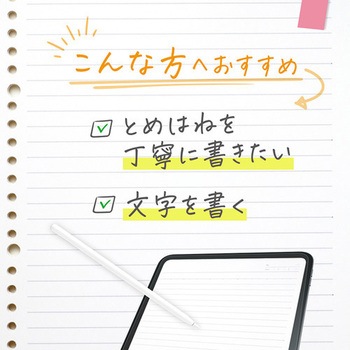 こんな方へおすすめ
とめはねを
丁寧に書きたい
文字を書く